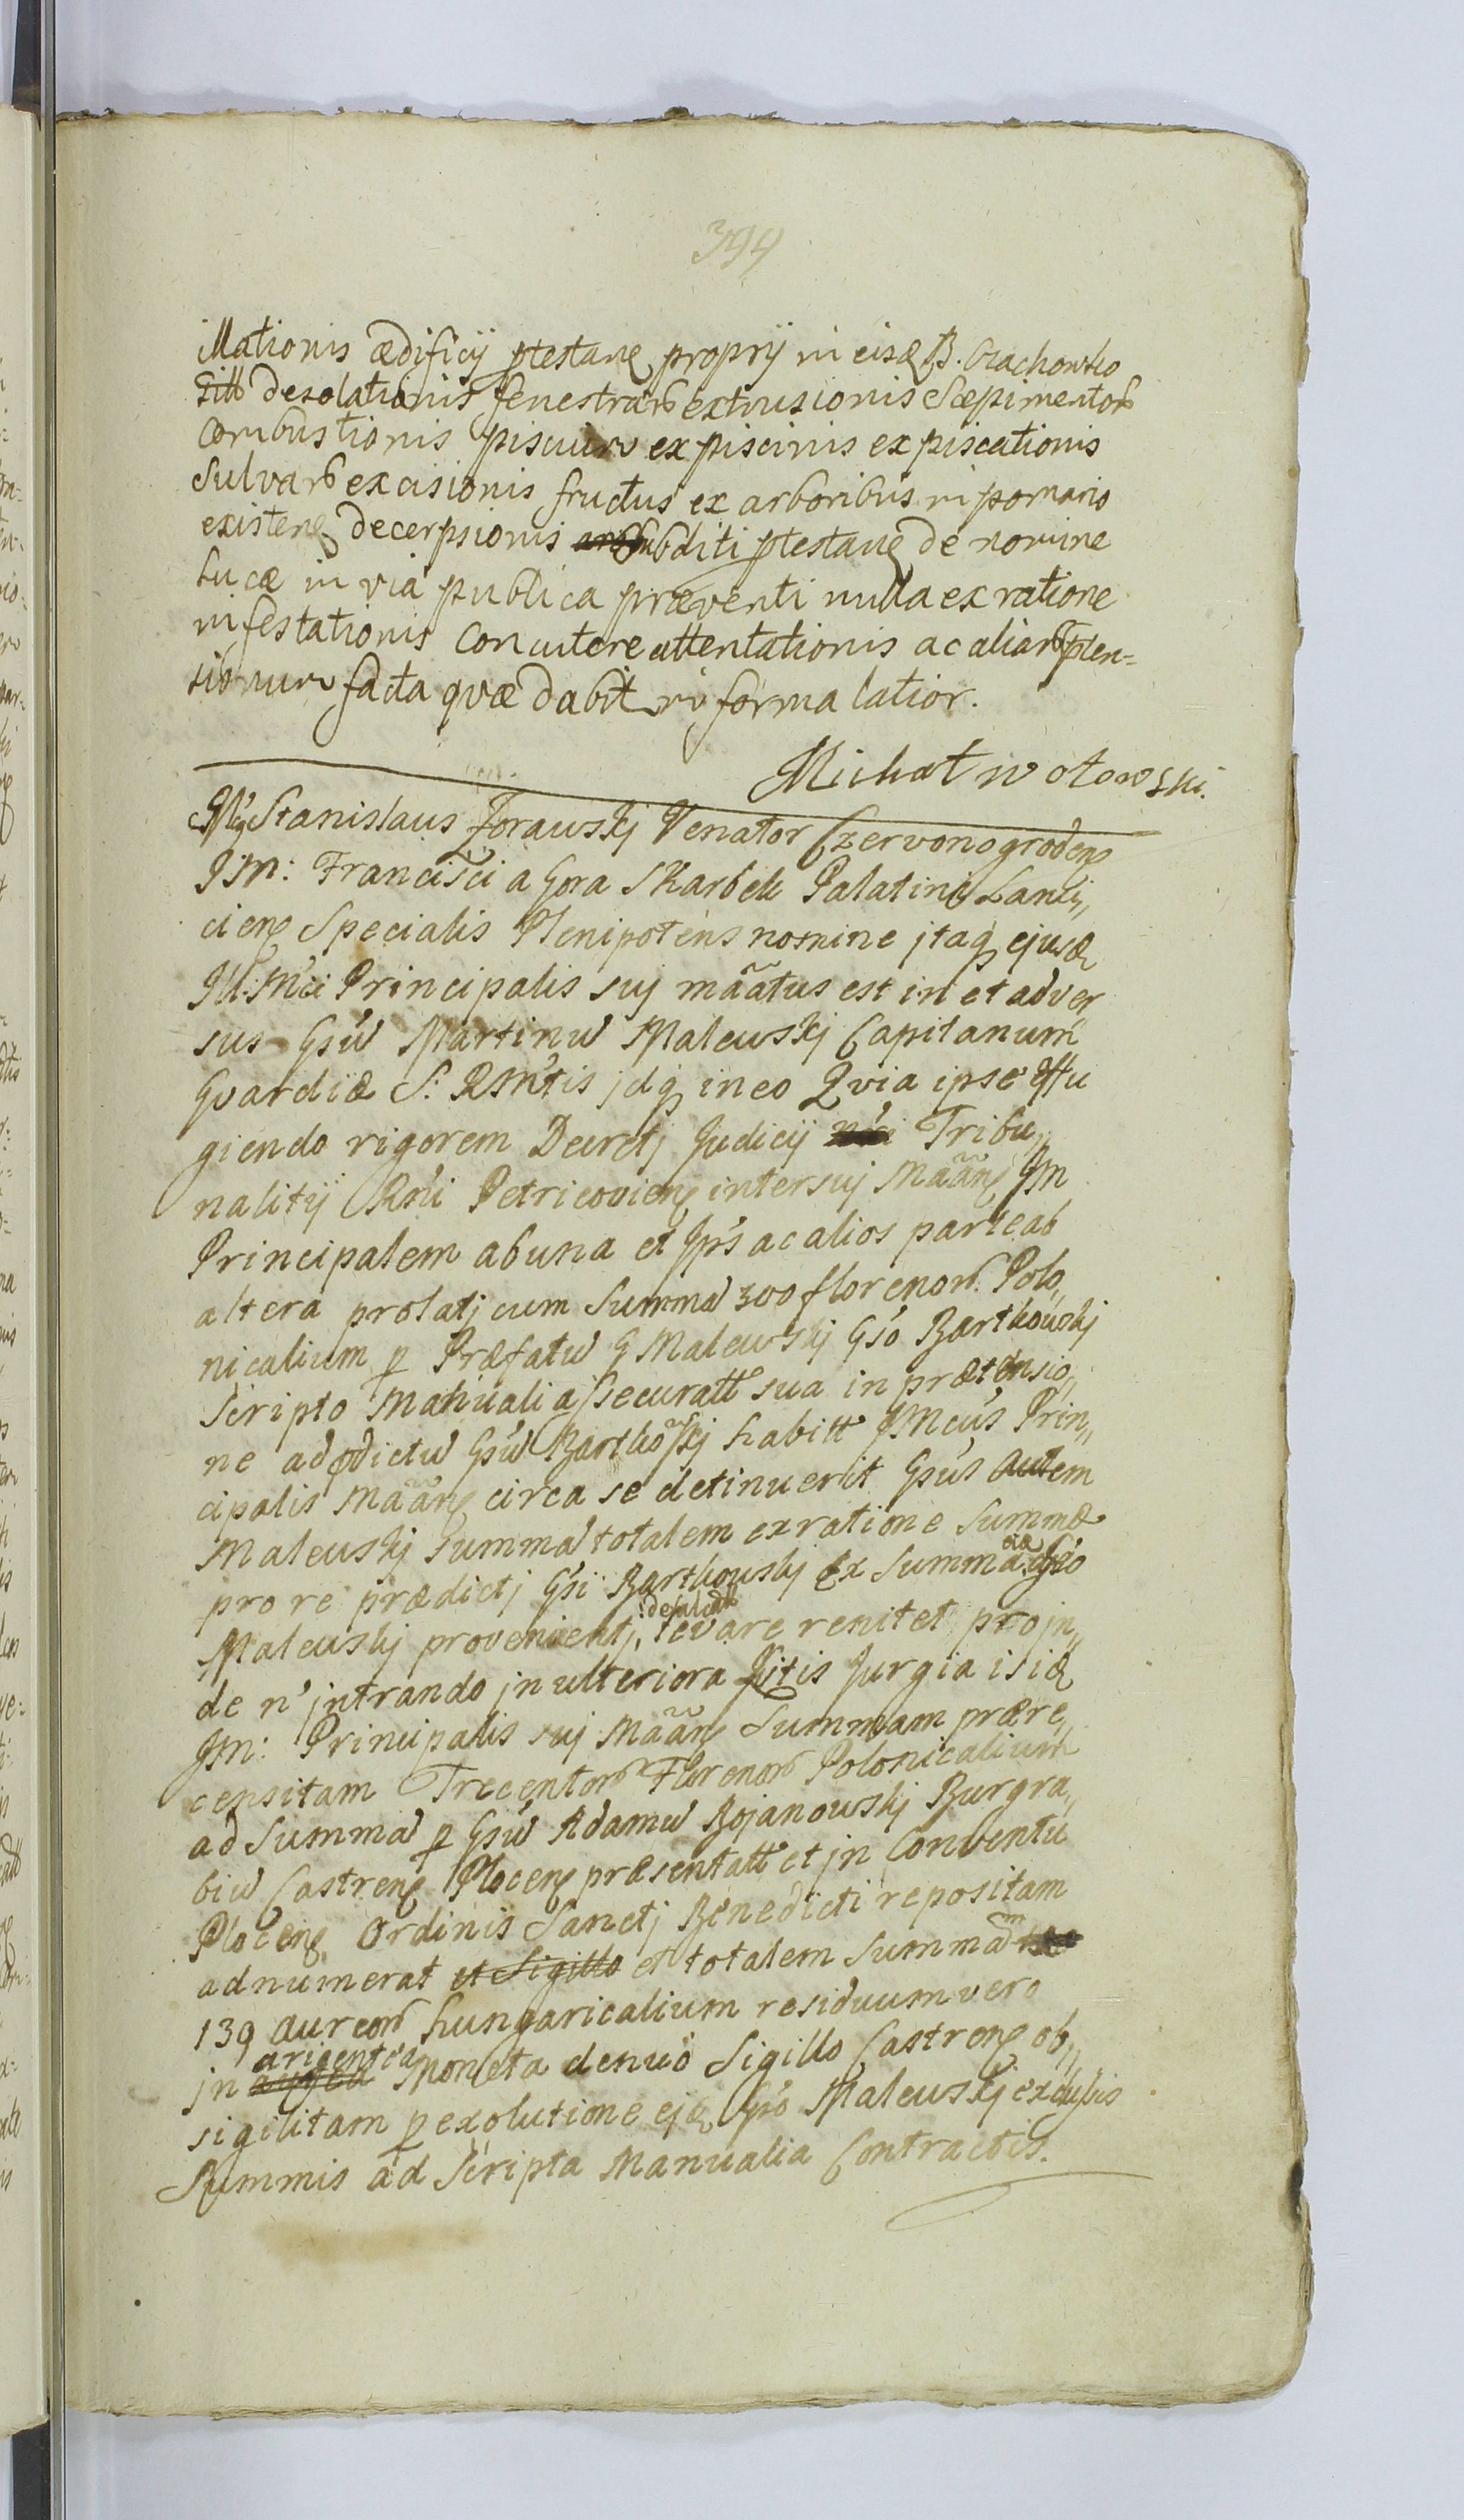 394
illationis ædificij ptestanę proprij in eisą B. Crachowko
sitt desolationis fenestrarb extrusionis Sæpimentorb
combustionis piscium ex piscinis expiscationis
Sulvarb excisionis fructus ex arboribus in pomario
existenę decerpsionis subditi ptestanę de nomine
Lucæ in via publica præventi nulla ex ratione
infestationis Concutere attentationis ac aliarb pten=
sionum facta qvæ dabit in forma latior.
Michał wotowski.
Mg Stanislaus Zorawskj Venator Czervonogrodenę
JM: Francisci a Gora Skarbek Palatini Lanci„
cienę Specialis Plenipotens nomine jtaq ejusą
Ill: Mci Principalis suj mããtus est in et adver
sus Gsũ Martinũ Malewskj Capitanum
Gvardiæ S. RMtis jdq in eo Qvia ipse effu
giendo rigorem Decretj Judicij Tribu„
nalitij Rni Petricovienę inter suj Mããnę JM
Principalem ab una et Jps ac alios parte ab
altera prolatj cum Summa 300 florenorb. Polo„
nicalium p Præfatũ G Malewskj Gso Bartkowskj
Scripto Manuali assecuratt sua in prætensio„
ne ad pdictũ Gsũ Bartkoskj habitt JMcus Prin„
cipalis Mããnę circa se detinuerit Gsus autem
Malewskj summã totalem ex ratione Summæ
pro re prædictj Gsi Bartkowskj Ex Summa Gso
Malewskj provenientj, levare renitet projn„
de n' jntrando jn ulteriora Litis Jurgia isią
JM: Principalis suj Mããnę Summam prære„
censitam Trecentorb Florenorb Polonicalium
ad Summã p Gsũ Adamũ Bojanowskj Burgra„
biũ Castrenę Plocenę præsentatt et jn Conventu
Plocenę Ordinis Sanctj Benedicti repositam
adnumerat et Sigillo et totalem Summã
139 aureorb hungaricalium residuum vero
jn arigentea Moneta denuo Sigillo Castrenę ob„
sigilitam p exolutione ejją Gso Malewskj exclusis
Summis ad Scripta Manualia Contractis.